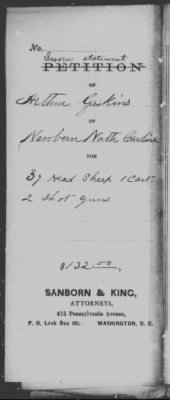 No.
Sworn statement
PETITION
OF
Arthur Gaskins
OF
Newbern North Carolina
FOR
39 Head Sheep 1 Cart
2 Shot Guns
$132.00,
SANBORN & KING,
ATTORNEYS,
474 Pennsylvania Avenue,
P. O. Lock Box 191. WASHINGTON, D. C.